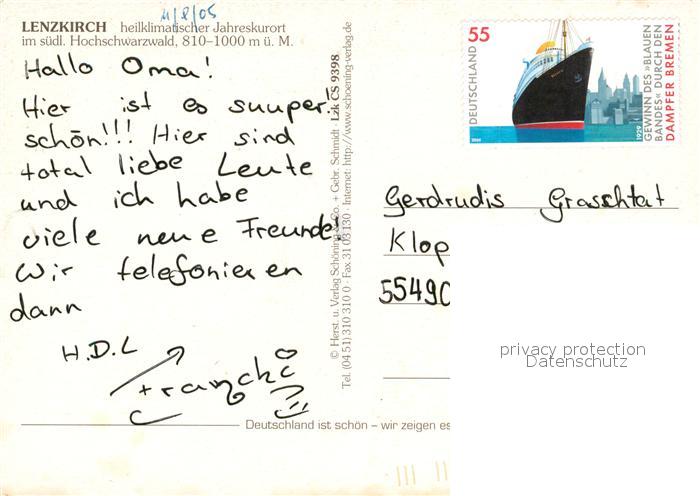 11/8/05
LENZKIRCH heilklimatischer Jahreskurort
im südl. Hochschwarzwald, 810–1000 m ü. M.
Hallo Oma!
Hier ist es suuper!
schön!!! Hier sind
total liebe Leute
und ich habe
viele neue Freunde!
Wir telefonieren
dann
H.D.L
© Herst. u. Verlag Schöning & Co. + Gebr. Schmidt · Lzk CS 9398
Tel. (04 51) 310 310 0 · Fax 31 03 130 · Internet: http://www.schoening-verlag.de
DEUTSCHLAND 55
GEWINN DES »BLAUEN
BANDES« DURCH DEN
DAMPFER BREMEN
1929
Gerdrudis Graschtat
Klop
55490
privacy protection
Datenschutz
Deutschland ist schön – wir zeigen es